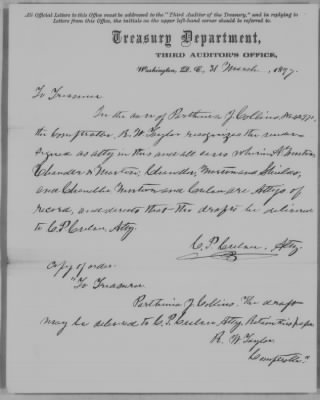 All Official Letters to this Office must be addressed to the "Third Auditor of the Treasury," and in replying to
Letters from this Office, the initials on the upper left-hand corner should be referred to.
Treasury Department,
THIRD AUDITOR'S OFFICE,
Washington, D. C., 31 March, 1877.
To Treasurer
In the case of Parthenia J. Collins,
the Comptroller, R. W. Taylor recognizes the
signed as atty in this and all cases wherein N.
Chandler & Newton, Chandler, Newton and Shields,
and Chandler Newton and are Attys of
record, and directs that the draft be delivered
to C. P. Atty
C. P. Atty.
Copy of order.
"To Treasurer
Parthenia J. Collins. The draft
may be delivered to C. P. Atty,
R. W. Taylor
Comptroller"